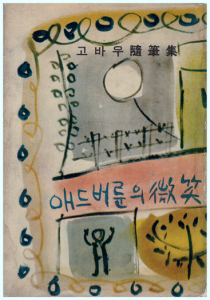 고바우隨筆集
애드버룬의微笑